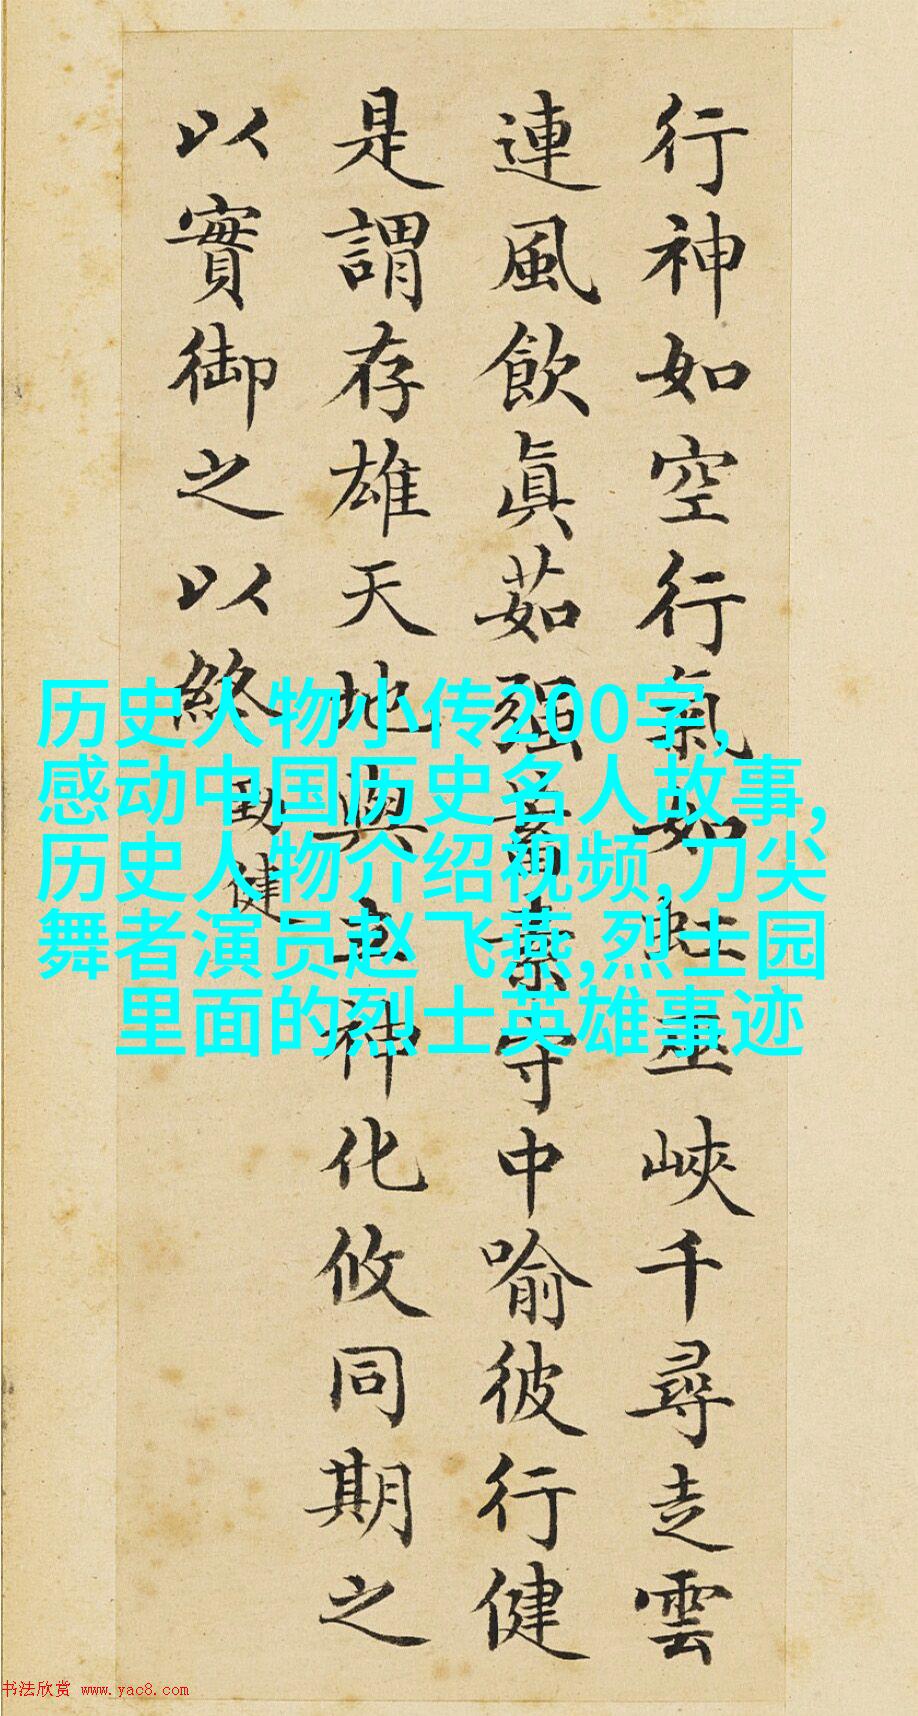 行神如空行氣如虹巫峽千尋走雲
連風飲眞茹强蓄素守中喻彼行健
是謂存雄天地與立神化攸同期之
以實御之以終
勁健
历史人物小传200字,
感动中国历史名人故事,
历史人物介绍视频,刀尖
舞者演员赵 飞燕,烈士园
里面的烈士英雄事迹
书法欣赏 www.yac8.com